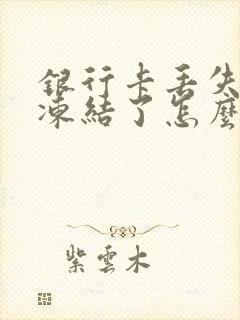 銀行卡丢失
凍結了怎麼
紫雲木